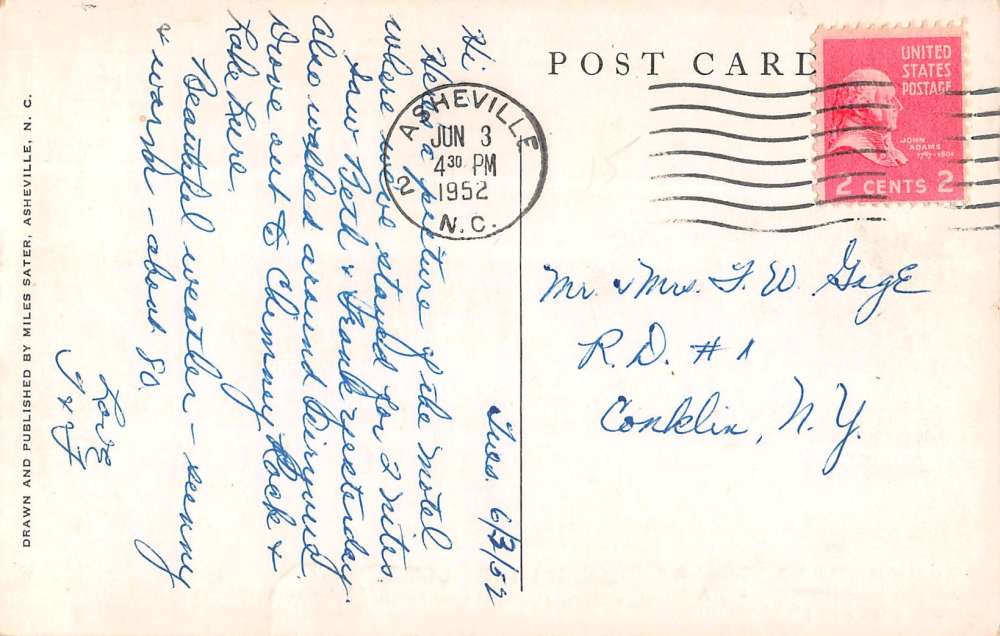 POST CARD
DRAWN AND PUBLISHED BY MILES SATER, ASHEVILLE, N. C.
ASHEVILLE
JUN 3
4 30 PM
1952
N.C.
2
UNITED
STATES
POSTAGE
JOHN
ADAMS
1797-1801
2 CENTS 2
Tues. 6/3/52
Hi.
Here's a picture of the motel
where we've stayed for 2 nites.
Saw Beth & Frank yesterday.
Also walked around
Drove out to Chimney Rock &
Lake Lure.
Beautiful weather - sunny
& warm - about 80.
Love
Mr. & Mrs. F. W. Gage
R.D. #1
Conklin, N.Y.